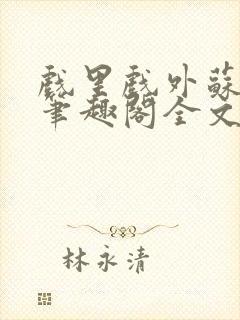 戲里戲外蘇
筆趣閣全文
林永清